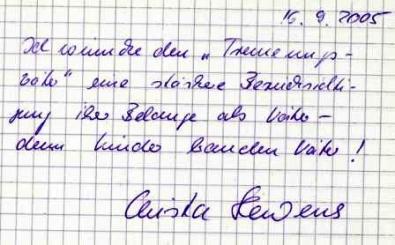 16.9.2005
Ich wünsche den „Trennungs-
väter“ eine stärkere Berücksichti-
gung ihrer Belange als Väter –
denn Kinder brauchen Väter!
Christa Stewens